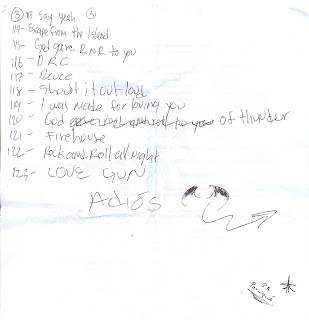 ③ 113 Say yeah ③
114- Escape from the Island
115- God gave RNR to you
116- DRC
117- Deuce
118- Shout it out loud
119- I was made for loving you
120- God of thunder
121- Firehouse
122- Rock and Roll all Night
123- LOVE GUN
Adiós